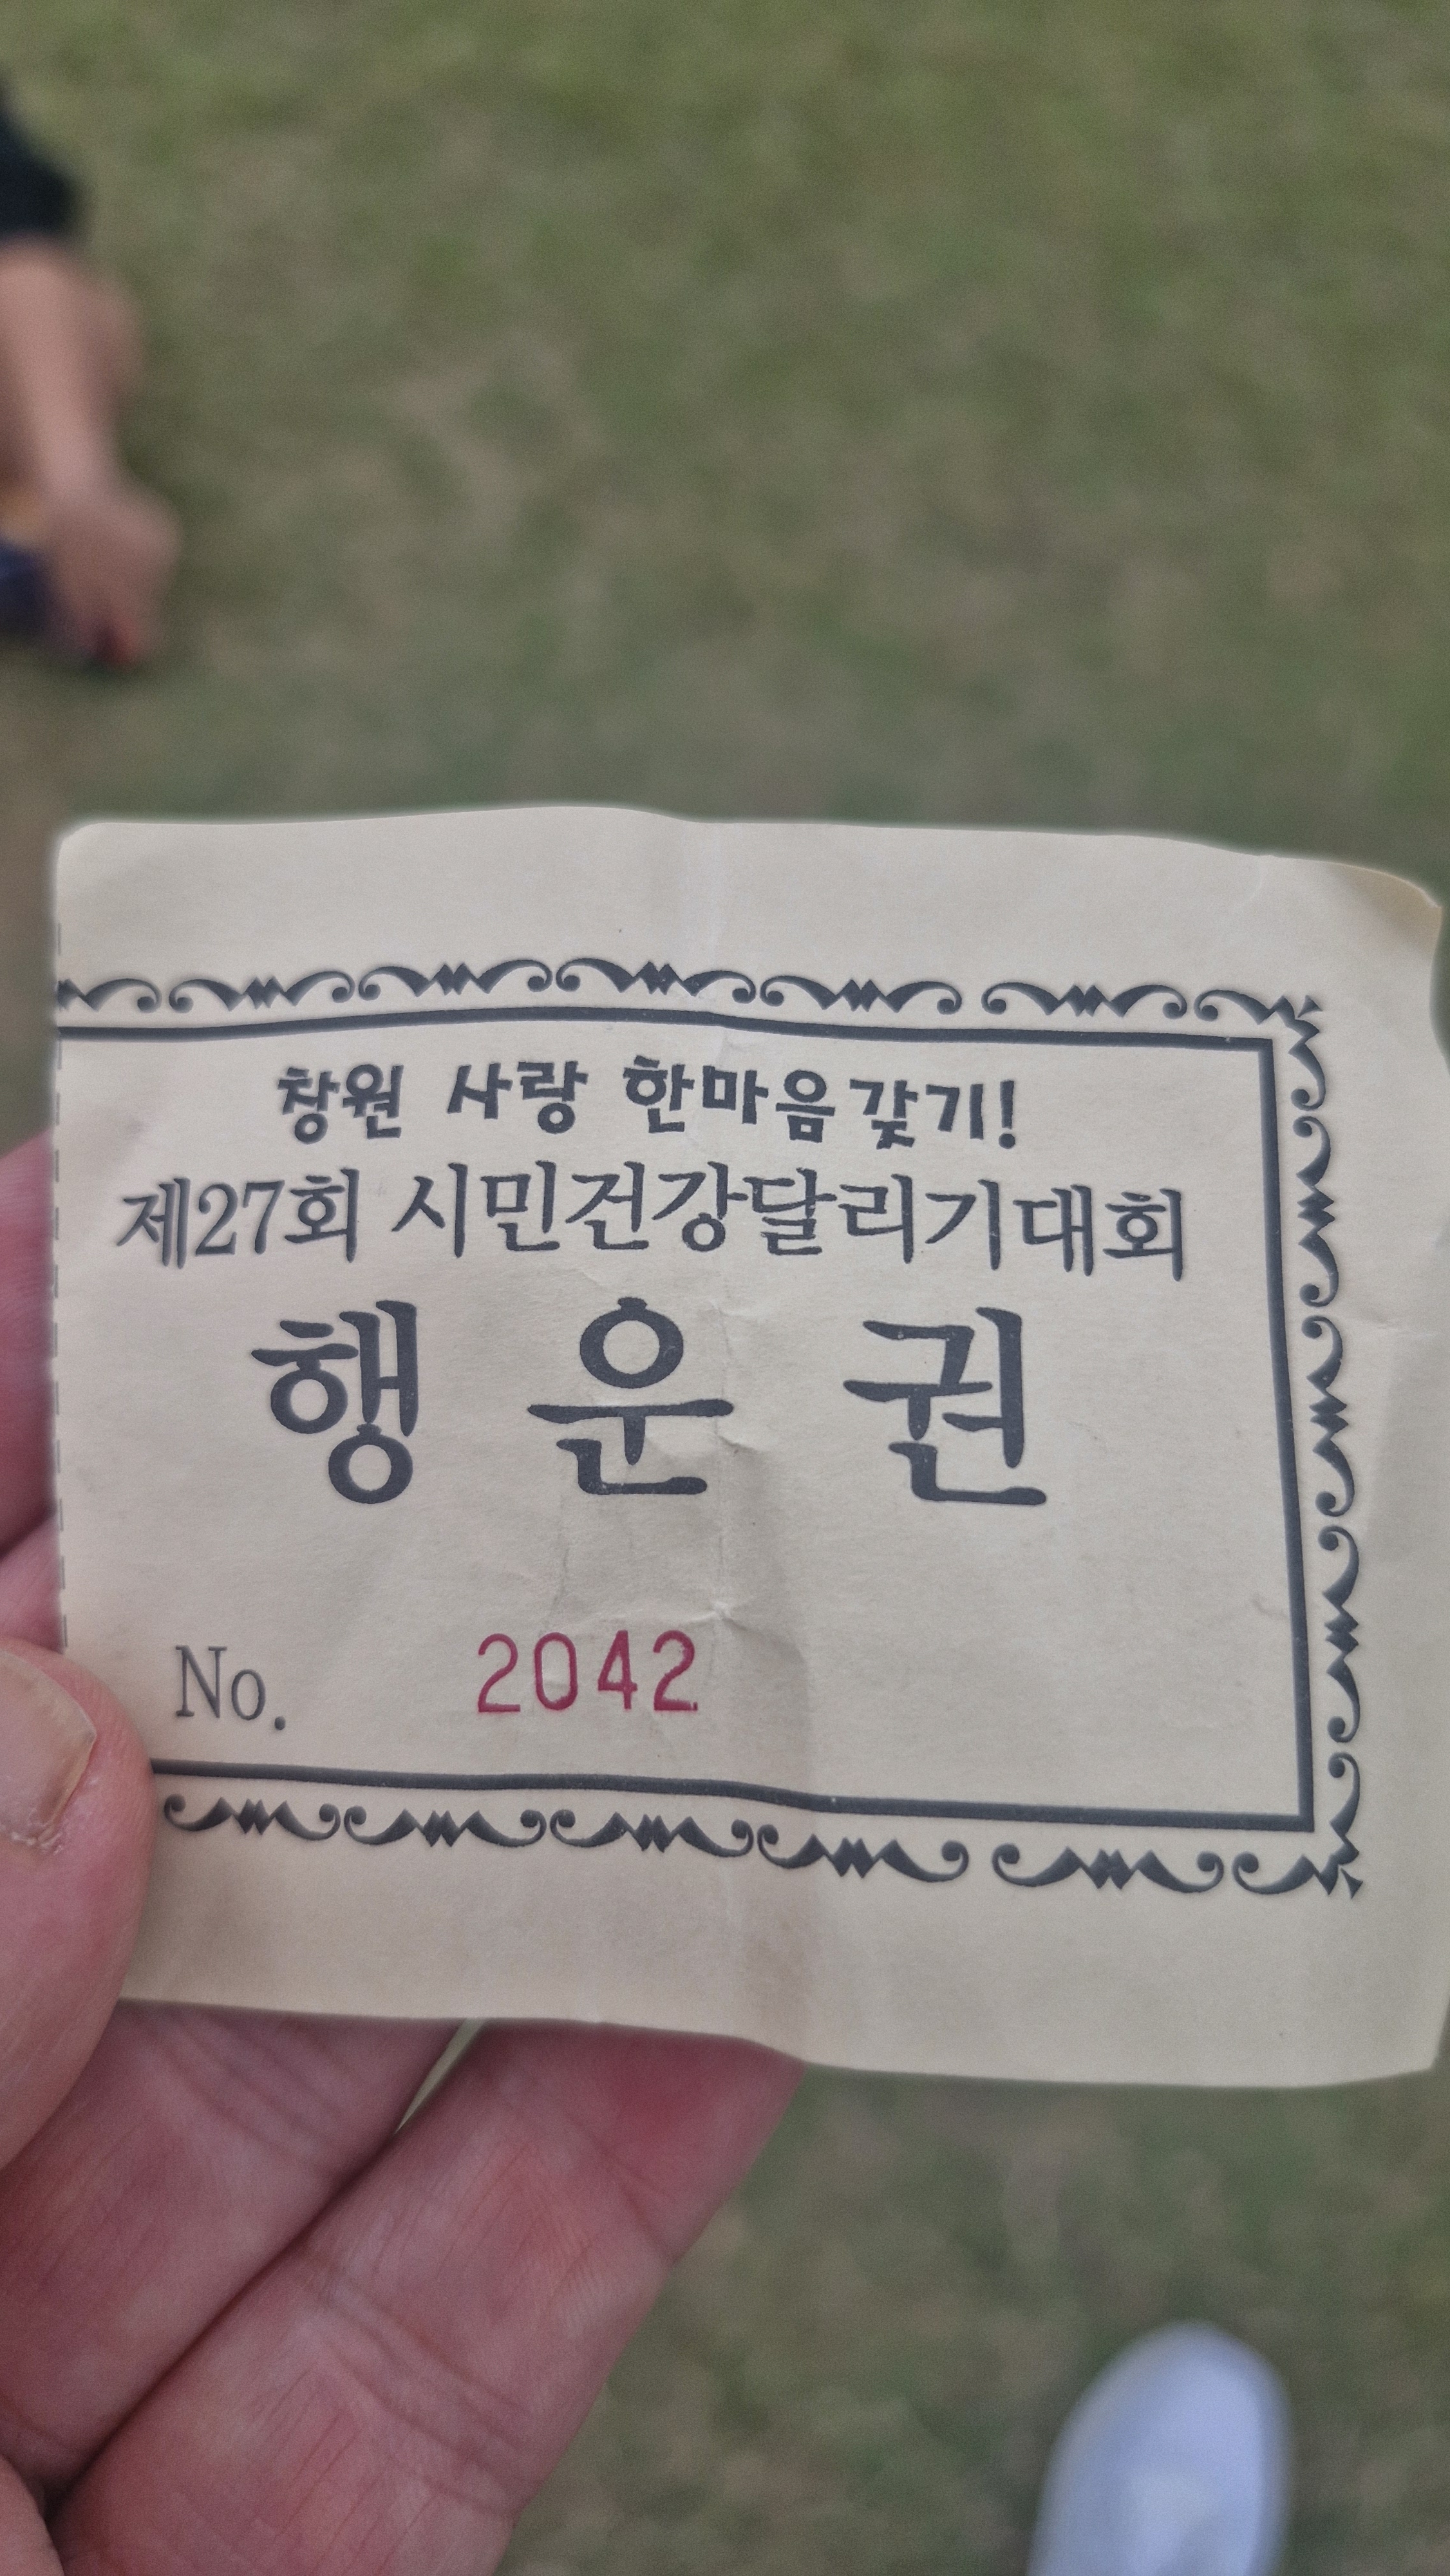 창원 사랑 한마음갖기!
제27회 시민건강달리기대회
행 운 권
No. 2042